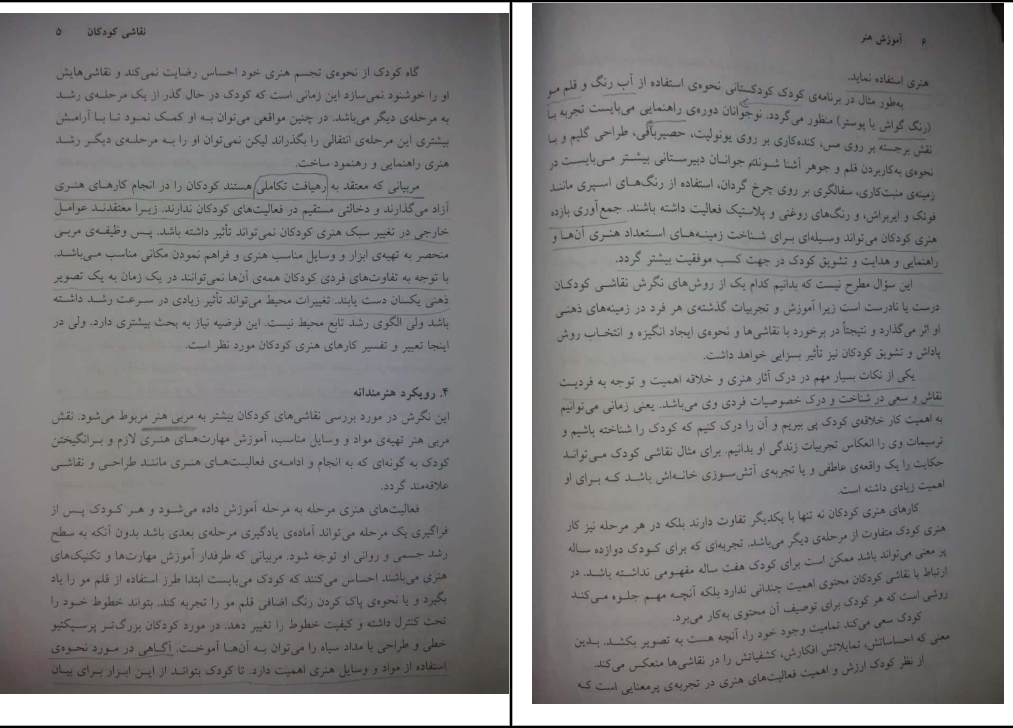 نقاشی کودکان ۵
گاه کودک از نحوه‌ی تجسم هنری خود احساس رضایت نمی‌کند و نقاشی‌هایش
او را خوشنود نمی‌سازد این زمانی است که کودک در حال گذر از یک مرحله‌ی رشد
به مرحله‌ی دیگر می‌باشد. در چنین مواقعی می‌توان به او کمک نمود تا با آرامش
بیشتری این مرحله‌ی انتقالی را بگذراند لیکن نمی‌توان او را به مرحله‌ی دیگر رشد
هنری راهنمایی و رهنمود ساخت.
مربیانی که معتقد به رهیافت تکاملی هستند کودکان را در انجام کارهای هنری
آزاد می‌گذارند و دخالتی مستقیم در فعالیت‌های کودکان ندارند. زیرا معتقدند عوامل
خارجی در تغییر سبک هنری کودکان نمی‌تواند تأثیر داشته باشد. پس وظیفه‌ی مربی
منحصر به تهیه‌ی ابزار و وسایل مناسب هنری و فراهم نمودن مکانی مناسب می‌باشد.
با توجه به تفاوت‌های فردی کودکان همه‌ی آن‌ها نمی‌توانند در یک زمان به یک تصویر
ذهنی یکسان دست یابند. تغییرات محیط می‌تواند تأثیر زیادی در سرعت رشد داشته
باشد ولی الگوی رشد تابع محیط نیست. این فرضیه نیاز به بحث بیشتری دارد. ولی در
اینجا تعبیر و تفسیر کارهای هنری کودکان مورد نظر است.
۴. رویکرد هنرمندانه
این نگرش در مورد بررسی نقاشی‌های کودکان بیشتر به مربی هنر مربوط می‌شود. نقش
مربی هنر تهیه‌ی مواد و وسایل مناسب، آموزش مهارت‌های هنری لازم و برانگیختن
کودک به گونه‌ای که به انجام و ادامه‌ی فعالیت‌های هنری مانند طراحی و نقاشی
علاقه‌مند گردد.
فعالیت‌های هنری مرحله به مرحله آموزش داده می‌شود و هر کودک پس از
فراگیری یک مرحله می‌تواند آماده‌ی یادگیری مرحله‌ی بعدی باشد بدون آنکه به سطح
رشد جسمی و روانی او توجه شود. مربیانی که طرفدار آموزش مهارت‌ها و تکنیک‌های
هنری می‌باشند احساس می‌کنند که کودک می‌بایست ابتدا طرز استفاده از قلم مو را یاد
بگیرد و یا نحوه‌ی پاک کردن رنگ اضافی قلم مو را تجربه کند. بتواند خطوط خود را
تحت کنترل داشته و کیفیت خطوط را تغییر دهد. در مورد کودکان بزرگ‌تر پرسپکتیو
خطی و طراحی با مداد سیاه را می‌توان به آن‌ها آموخت. آگاهی در مورد نحوه‌ی
استفاده از مواد و وسایل هنری اهمیت دارد. تا کودک بتواند از این ابزار برای بیان
۶ آموزش هنر
هنری استفاده نماید.
به‌طور مثال در برنامه‌ی کودک کودکستانی نحوه‌ی استفاده از آب رنگ و قلم مو
(رنگ گواش یا پوستر) منظور می‌گردد. نوجوانان دوره‌ی راهنمایی می‌بایست تجربه با
نقش برجسته بر روی مس، کنده‌کاری بر روی یونولیت، حصیربافی، طراحی گلیم و با
نحوه‌ی به‌کاربردن قلم و جوهر آشنا شوند. جوانان دبیرستانی بیشتر می‌بایست در
زمینه‌ی منبت‌کاری، سفالگری بر روی چرخ گردان، استفاده از رنگ‌های اسپری مانند
فوتک و ایربراش، و رنگ‌های روغنی و پلاستیک فعالیت داشته باشند. جمع‌آوری بازده
هنری کودکان می‌تواند وسیله‌ای برای شناخت زمینه‌های استعداد هنری آن‌ها و
راهنمایی و هدایت و تشویق کودک در جهت کسب موفقیت بیشتر گردد.
این سؤال مطرح نیست که بدانیم کدام یک از روش‌های نگرش نقاشی کودکان
درست یا نادرست است زیرا آموزش و تجربیات گذشته‌ی هر فرد در زمینه‌های ذهنی
او اثر می‌گذارد و نتیجتاً در برخورد با نقاشی‌ها و نحوه‌ی ایجاد انگیزه و انتخاب روش
پاداش و تشویق کودکان نیز تأثیر بسزایی خواهد داشت.
یکی از نکات بسیار مهم در درک آثار هنری و خلاقه اهمیت و توجه به فردیت
نقاش و سعی در شناخت و درک خصوصیات فردی وی می‌باشد. یعنی زمانی می‌توانیم
به اهمیت کار خلاقه‌ی کودک پی ببریم و آن را درک کنیم که کودک را شناخته باشیم و
ترسیمات وی را انعکاس تجربیات زندگی او بدانیم. برای مثال نقاشی کودک می‌تواند
حکایت را یک واقعه‌ی عاطفی و یا تجربه‌ی آتش‌سوزی خانه‌اش باشد که برای او
اهمیت زیادی داشته است.
کارهای هنری کودکان نه تنها با یکدیگر تفاوت دارند بلکه در هر مرحله نیز کار
هنری کودک متفاوت از مرحله‌ی دیگر می‌باشد. تجربه‌ای که برای کودک دوازده ساله
پر معنی می‌تواند باشد ممکن است برای کودک هفت ساله مفهومی نداشته باشد. در
ارتباط با نقاشی کودکان محتوی اهمیت چندانی ندارد بلکه آنچه مهم جلوه می‌کند
روشی است که هر کودک برای توصیف آن محتوی به‌کار می‌برد.
کودک سعی می‌کند تمامیت وجود خود را، آنچه هست به تصویر بکشد. بدین
معنی که احساساتش، تمایلاتش افکارش، کشفیاتش را در نقاشی‌ها منعکس می‌کند.
از نظر کودک ارزش و اهمیت فعالیت‌های هنری در تجربه‌ی پرمعنایی است که